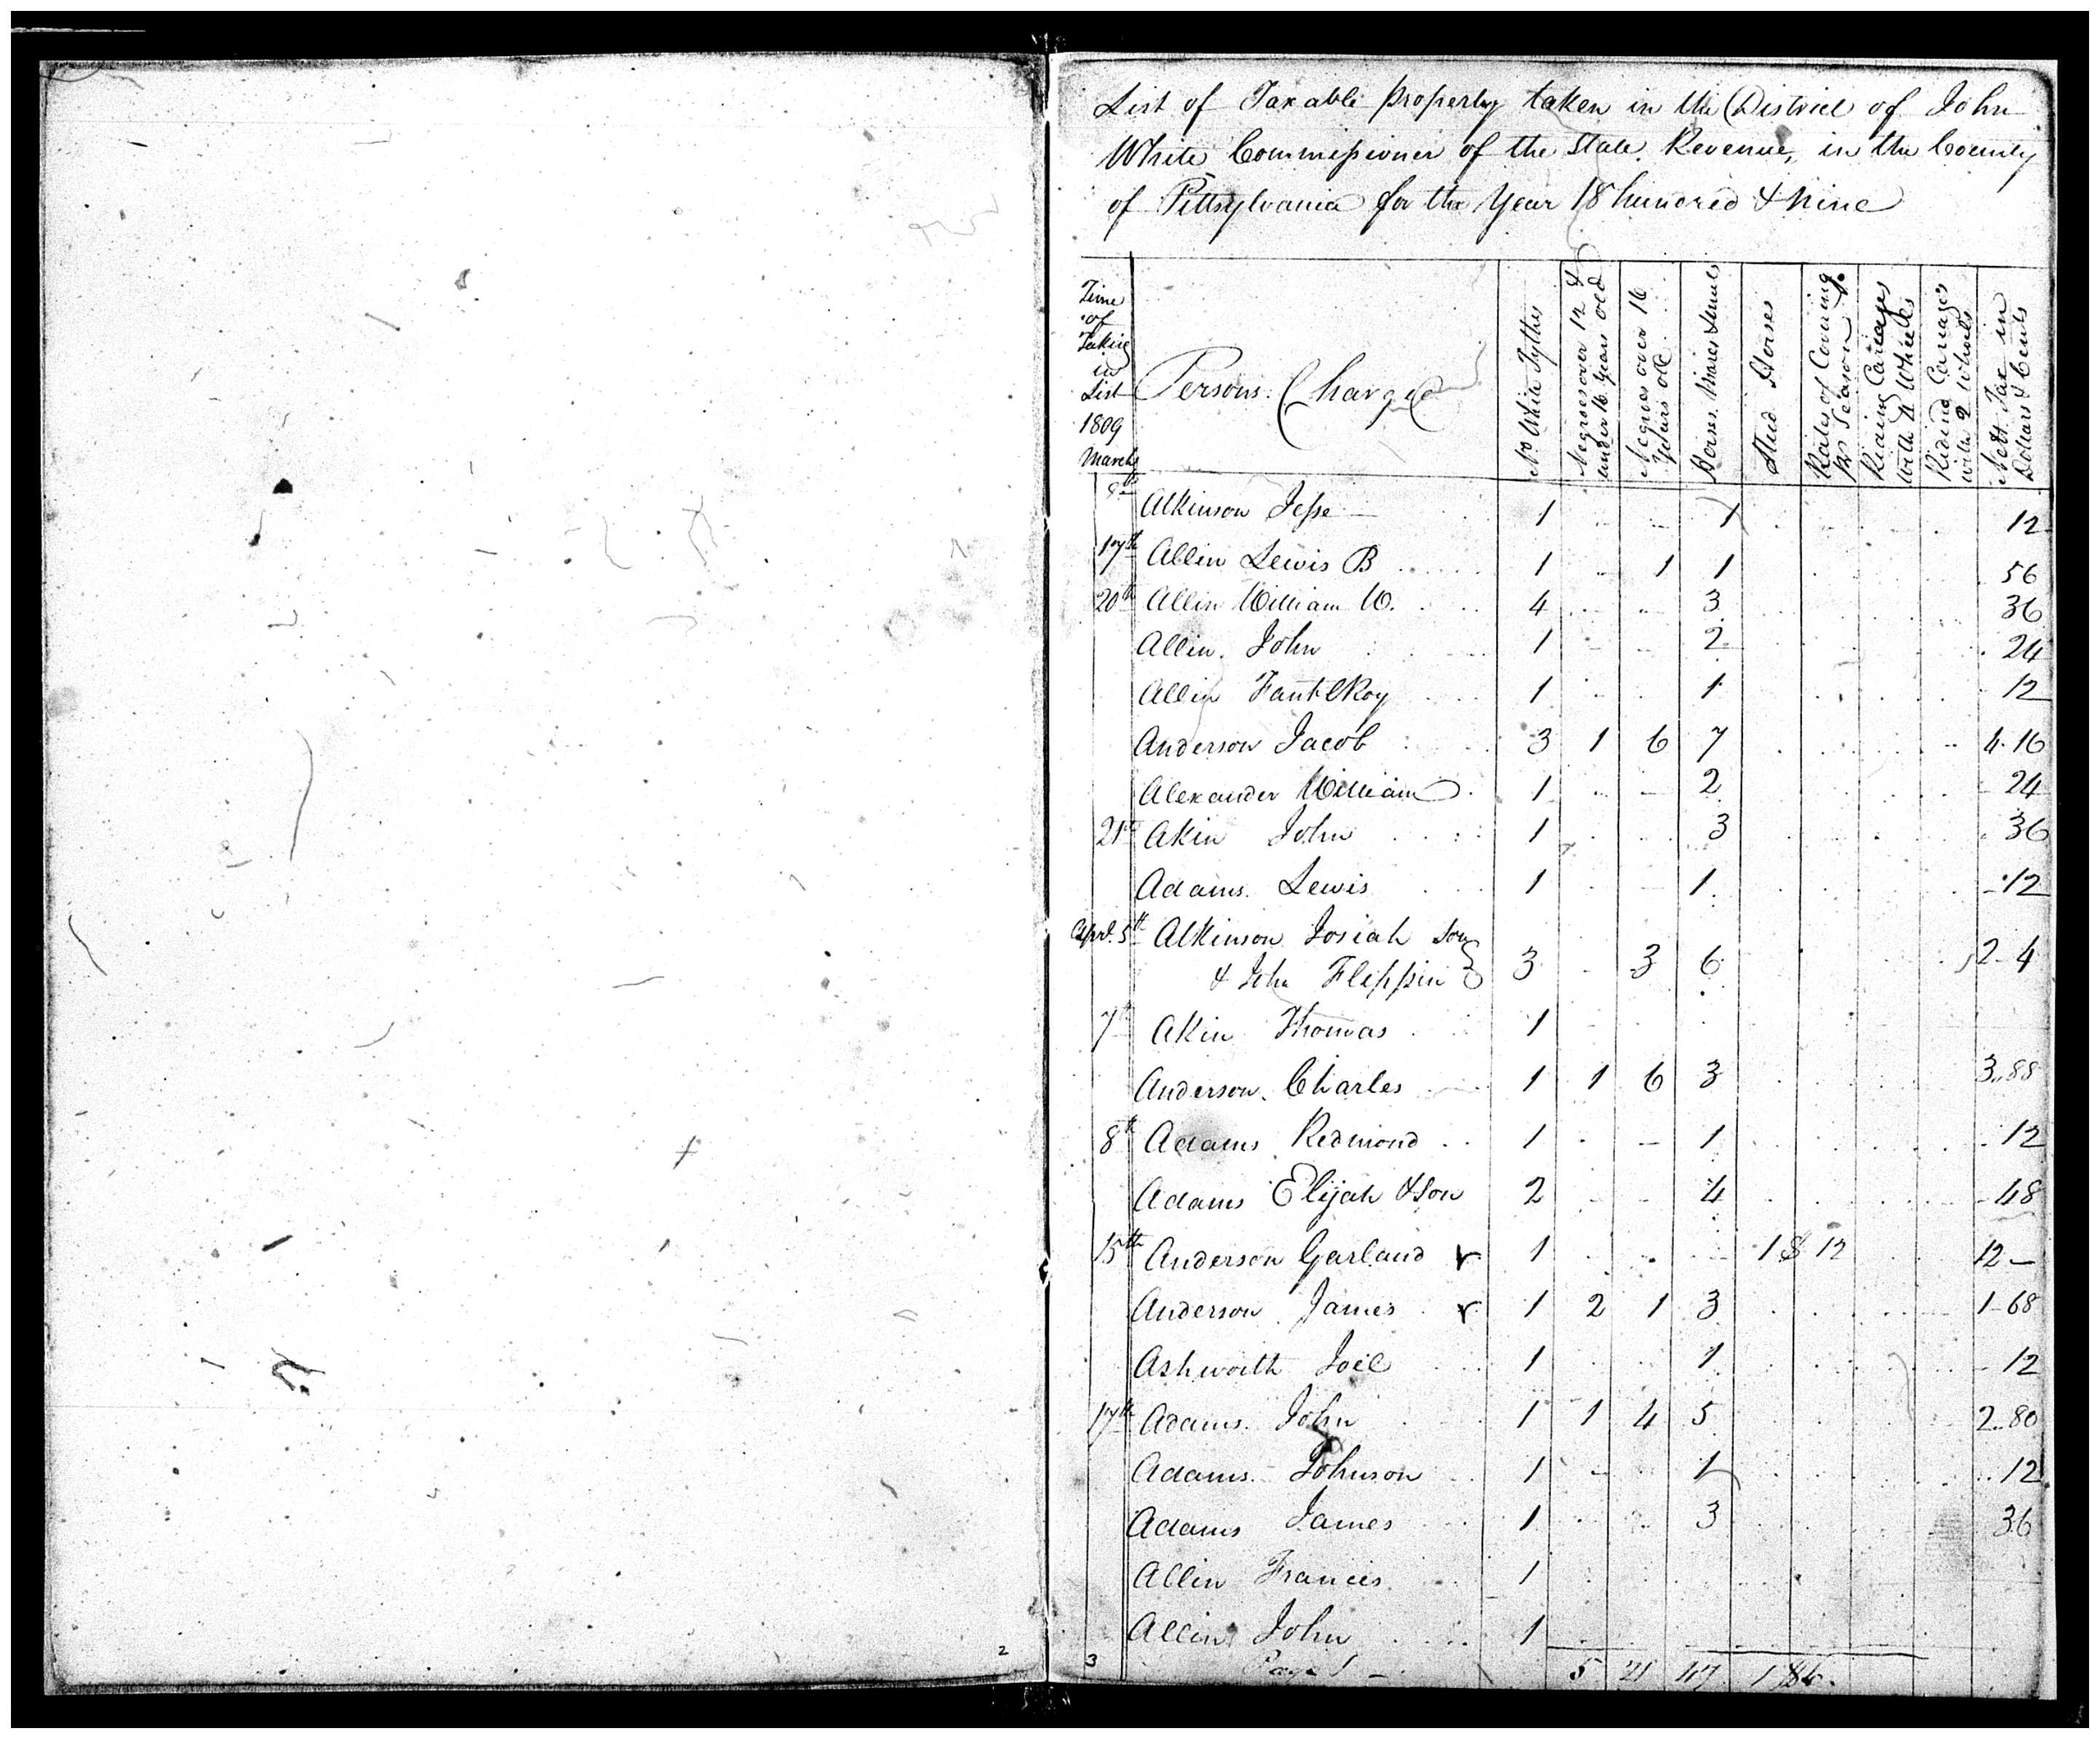 List of Taxable property taken in the District of John
White Commissioner of the State Revenue, in the County
of Pittsylvania for the Year 18 hundred & nine
Time of Taking in List 1809 March
Persons Charged
No White Tythes
Negroes over 12 & under 16 Years old
Negroes over 16 Years old
Horses Mares & Mules
Stud Horses
Rates of Covering pr Season
Riding Carriages with 4 Wheels
Riding Carriages with 2 Wheels
Nett Tax in Dollars & Cents
9th Atkinson Jesse 1 1 12
17th Allin Lewis B 1 1 1 56
20th Allin William W. 4 3 36
Allin John 1 2 24
Allin FauntLRoy 1 1 12
Anderson Jacob 3 1 6 7 4.16
Alexander William 1 2 24
21st Akin John 1 3 36
Adams Lewis 1 1 12
Aprl. 5th Atkinson Josiah Son
& John Flippin 3 3 6 2-4
7th Akin Thomas 1
Anderson Charles 1 1 6 3 3..88
8th Adams Redmond 1 1 12
Adams Elijah & Son 2 4 48
15th Anderson Garland 1 1 $ 12 12 -
Anderson James 1 2 1 3 1-68
Ashworth Joel 1 1 12
17th Adams John 1 1 4 5 2..80
Adams Johnson 1 1 12
Adams James 1 3 36
Allin Francis 1
Allin John 1
Page 1 5 21 47 1
2
3